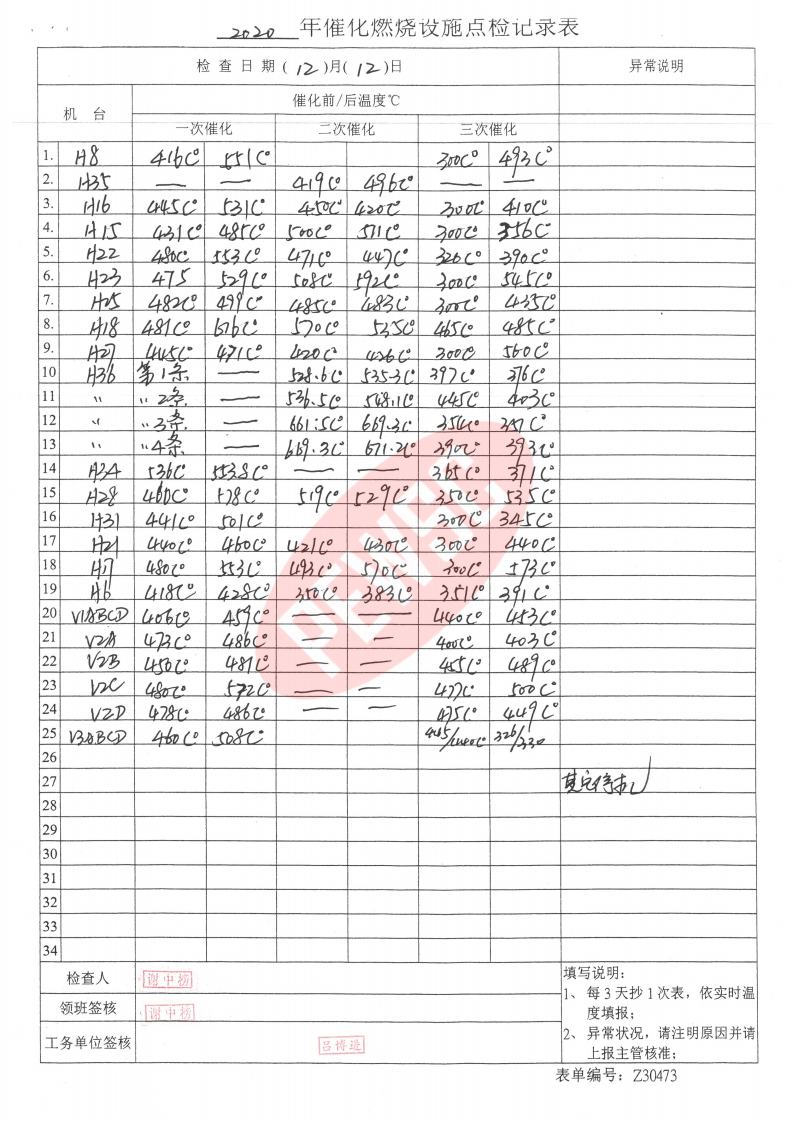 2020 年催化燃烧设施点检记录表
检查日期(12)月(12)日 异常说明
机 台 催化前/后温度℃
一次催化 二次催化 三次催化
1. H8 416C° 551C° 300C° 493C°
2. H35 — — 419C° 496C° — —
3. H16 445C° 531C° 450C° 420C° 300C° 410C°
4. H15 431C° 485C° 500C° 571C° 300C° 356C°
5. H22 480C° 553C° 471C° 447C° 320C° 390C°
6. H23 475 529C° 508C° 592C° 300C° 545C°
7. H25 482C° 499C° 485C° 483C° 300C° 435C°
8. H18 481C° 616C° 570C° 535C° 465C° 485C°
9. H27 445C° 471C° 420C° 426C° 300C° 560C°
10 H36 第1条 — 528.6C° 535.3C° 397C° 376C°
11 〃 〃2条 — 536.5C° 548.1C° 445C° 403C°
12 〃 〃3条 — 661.5C° 669.3C° 354C° 357C°
13 〃 〃4条 — 669.3C° 671.2C° 390C° 393C°
14 H34 536C° 553.8C° — — 365C° 371C°
15 H28 460C° 578C° 519C° 529C° 350C° 535C°
16 H31 441C° 501C° 300C° 345C°
17 H21 440C° 460C° 421C° 430C° 300C° 440C°
18 H7 480C° 553C° 493C° 570C° 300C° 573C°
19 H6 418C° 428C° 350C° 383C° 351C° 391C°
20 V1ABCD 406C° 459C° — — 440C° 453C°
21 V2A 473C° 486C° — — 400C° 403C°
22 V2B 456C° 481C° — — 455C° 489C°
23 V2C 480C° 572C° — — 477C° 500C°
24 V2D 478C° 486C° — — 475C° 449C°
25 V3ABCD 460C° 508C° 445/440C° 326/330
26
27 其它停机
28
29
30
31
32
33
34
检查人 谢中榜
领班签核 谢中榜
工务单位签核 吕博进
填写说明：
1、每3天抄1次表，依实时温
度填报；
2、异常状况，请注明原因并请
上报主管核准；
表单编号：Z30473
PEWSC